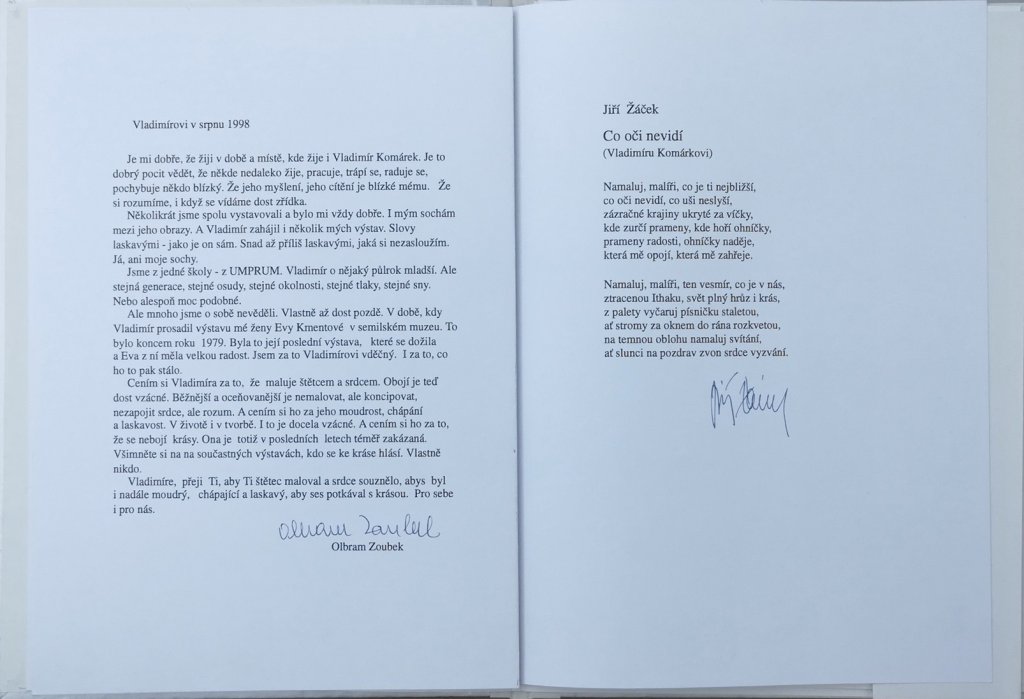 Vladimírovi v srpnu 1998
Je mi dobře, že žiji v době a místě, kde žije i Vladimír Komárek. Je to
dobrý pocit vědět, že někde nedaleko žije, pracuje, trápí se, raduje se,
pochybuje někdo blízký. Že jeho myšlení, jeho cítění je blízké mému. Že
si rozumíme, i když se vídáme dost zřídka.
Několikrát jsme spolu vystavovali a bylo mi vždy dobře. I mým sochám
mezi jeho obrazy. A Vladimír zahájil i několik mých výstav. Slovy
laskavými - jako je on sám. Snad až příliš laskavými, jaká si nezasloužím.
Já, ani moje sochy.
Jsme z jedné školy - z UMPRUM. Vladimír o nějaký půlrok mladší. Ale
stejná generace, stejné osudy, stejné okolnosti, stejné tlaky, stejné sny.
Nebo alespoň moc podobné.
Ale mnoho jsme o sobě nevěděli. Vlastně až dost pozdě. V době, kdy
Vladimír prosadil výstavu mé ženy Evy Kmentové v semilském muzeu. To
bylo koncem roku 1979. Byla to její poslední výstava, které se dožila
a Eva z ní měla velkou radost. Jsem za to Vladimírovi vděčný. I za to, co
ho to pak stálo.
Cením si Vladimíra za to, že maluje štětcem a srdcem. Obojí je teď
dost vzácné. Běžnější a oceňovanější je nemalovat, ale koncipovat,
nezapojit srdce, ale rozum. A cením si ho za jeho moudrost, chápání
a laskavost. V životě i v tvorbě. I to je docela vzácné. A cením si ho za to,
že se nebojí krásy. Ona je totiž v posledních letech téměř zakázaná.
Všimněte si na na součastných výstavách, kdo se ke kráse hlásí. Vlastně
nikdo.
Vladimíre, přeji Ti, aby Ti štětec maloval a srdce souznělo, abys byl
i nadále moudrý, chápající a laskavý, aby ses potkával s krásou. Pro sebe
i pro nás.
Olbram Zoubek
Olbram Zoubek
Jiří Žáček
Co oči nevidí
(Vladimíru Komárkovi)
Namaluj, malíři, co je ti nejbližší,
co oči nevidí, co uši neslyší,
zázračné krajiny ukryté za víčky,
kde zurčí prameny, kde hoří ohníčky,
prameny radosti, ohníčky naděje,
která mě opojí, která mě zahřeje.
Namaluj, malíři, ten vesmír, co je v nás,
ztracenou Ithaku, svět plný hrůz i krás,
z palety vyčaruj písničku staletou,
ať stromy za oknem do rána rozkvetou,
na temnou oblohu namaluj svítání,
ať slunci na pozdrav zvon srdce vyzvání.